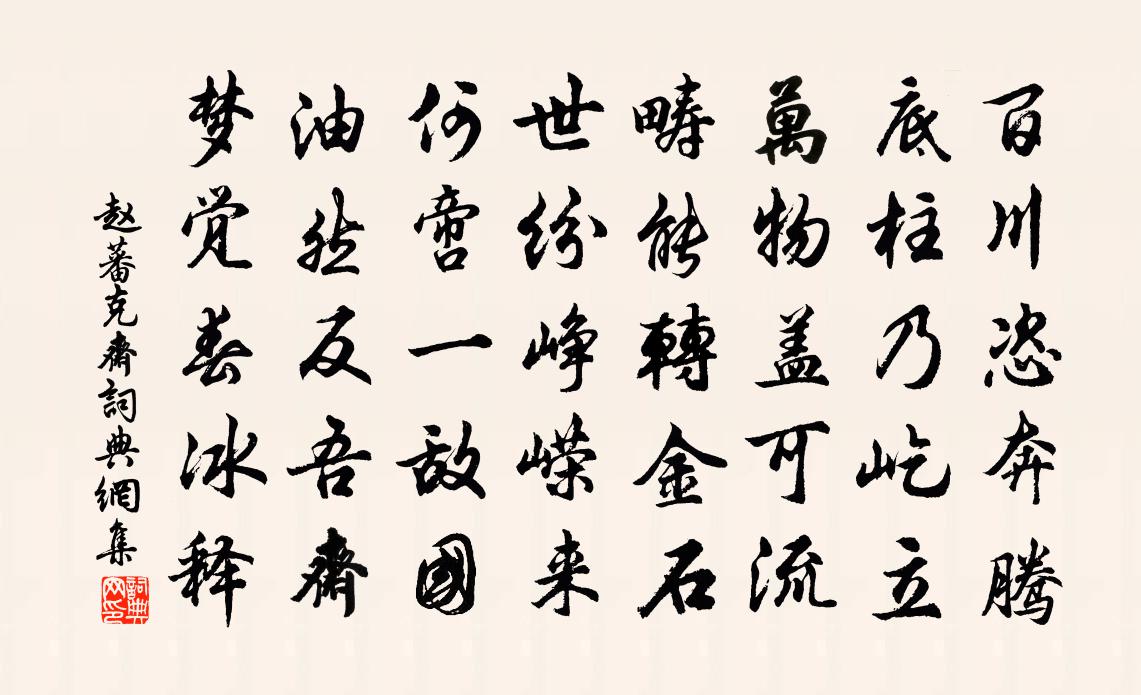 百川恣奔腾
底柱乃屹立
萬物盖可流
疇能轉金石
世纷峥嵘来
何啻一敌國
油然反吾齋
梦觉春冰释
赵蕃克齋詞典網集
詞典网印